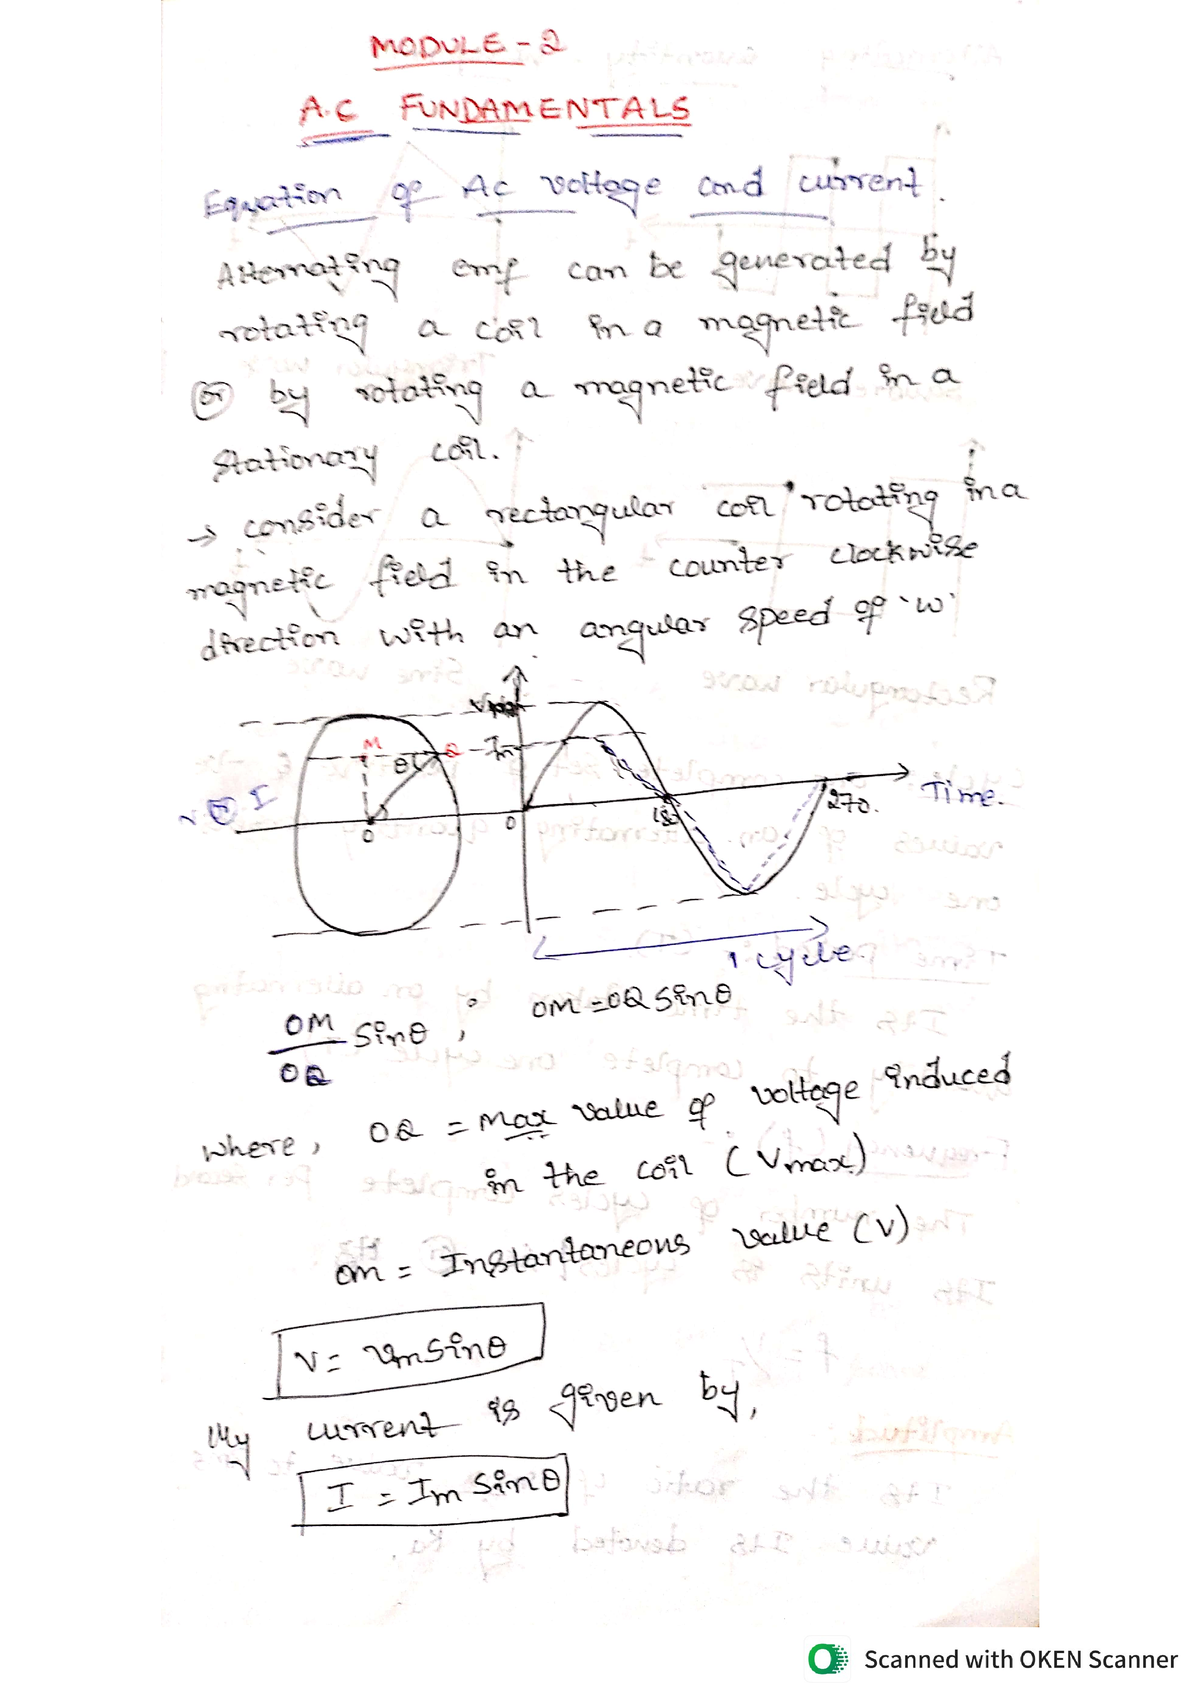 MODULE - 2
A.C FUNDAMENTALS
Equation of AC voltage and current.
Alternating emf can be generated by
rotating a coil in a magnetic field
or by rotating a magnetic field in a
stationary coil.
→ consider a rectangular coil rotating in a
magnetic field in the counter clockwise
direction with an angular speed of 'w'
M
θ
Q
Im
V or I
O
0
180
270.
Time.
1 cycle.
OM/OQ = sinθ ; OM = OQ sinθ
where, OQ = Max value of voltage induced
in the coil (Vmax)
OM = Instantaneous value (V)
V = Vm sinθ
lly current is given by,
I = Im sinθ
Scanned with OKEN Scanner